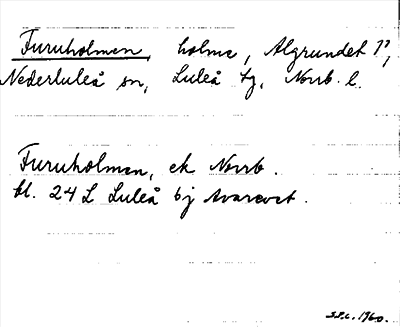 Furuholmen, holme, Algrundet 1²,
Nederluleå sn, Luleå tg, Norrb. l.
Furuholmen, ek Norrb.
bl. 24 L Luleå bj Avarevet.
S.F.C. 1960.